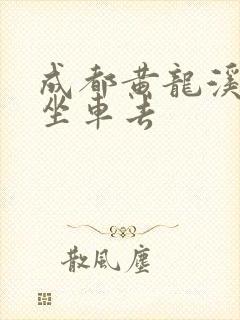 成都黄龍溪
坐車去
散風塵